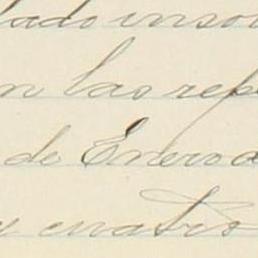 lado inso
n las rep
de Enero d
y cuatro